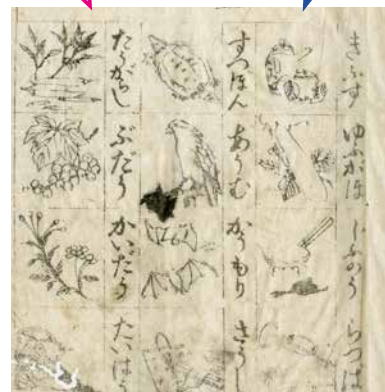 きふす ゆふがほ じふのう らつは
すつほん あうむ かうもり さうし
たうがらし ぶだう かいだう たいはう